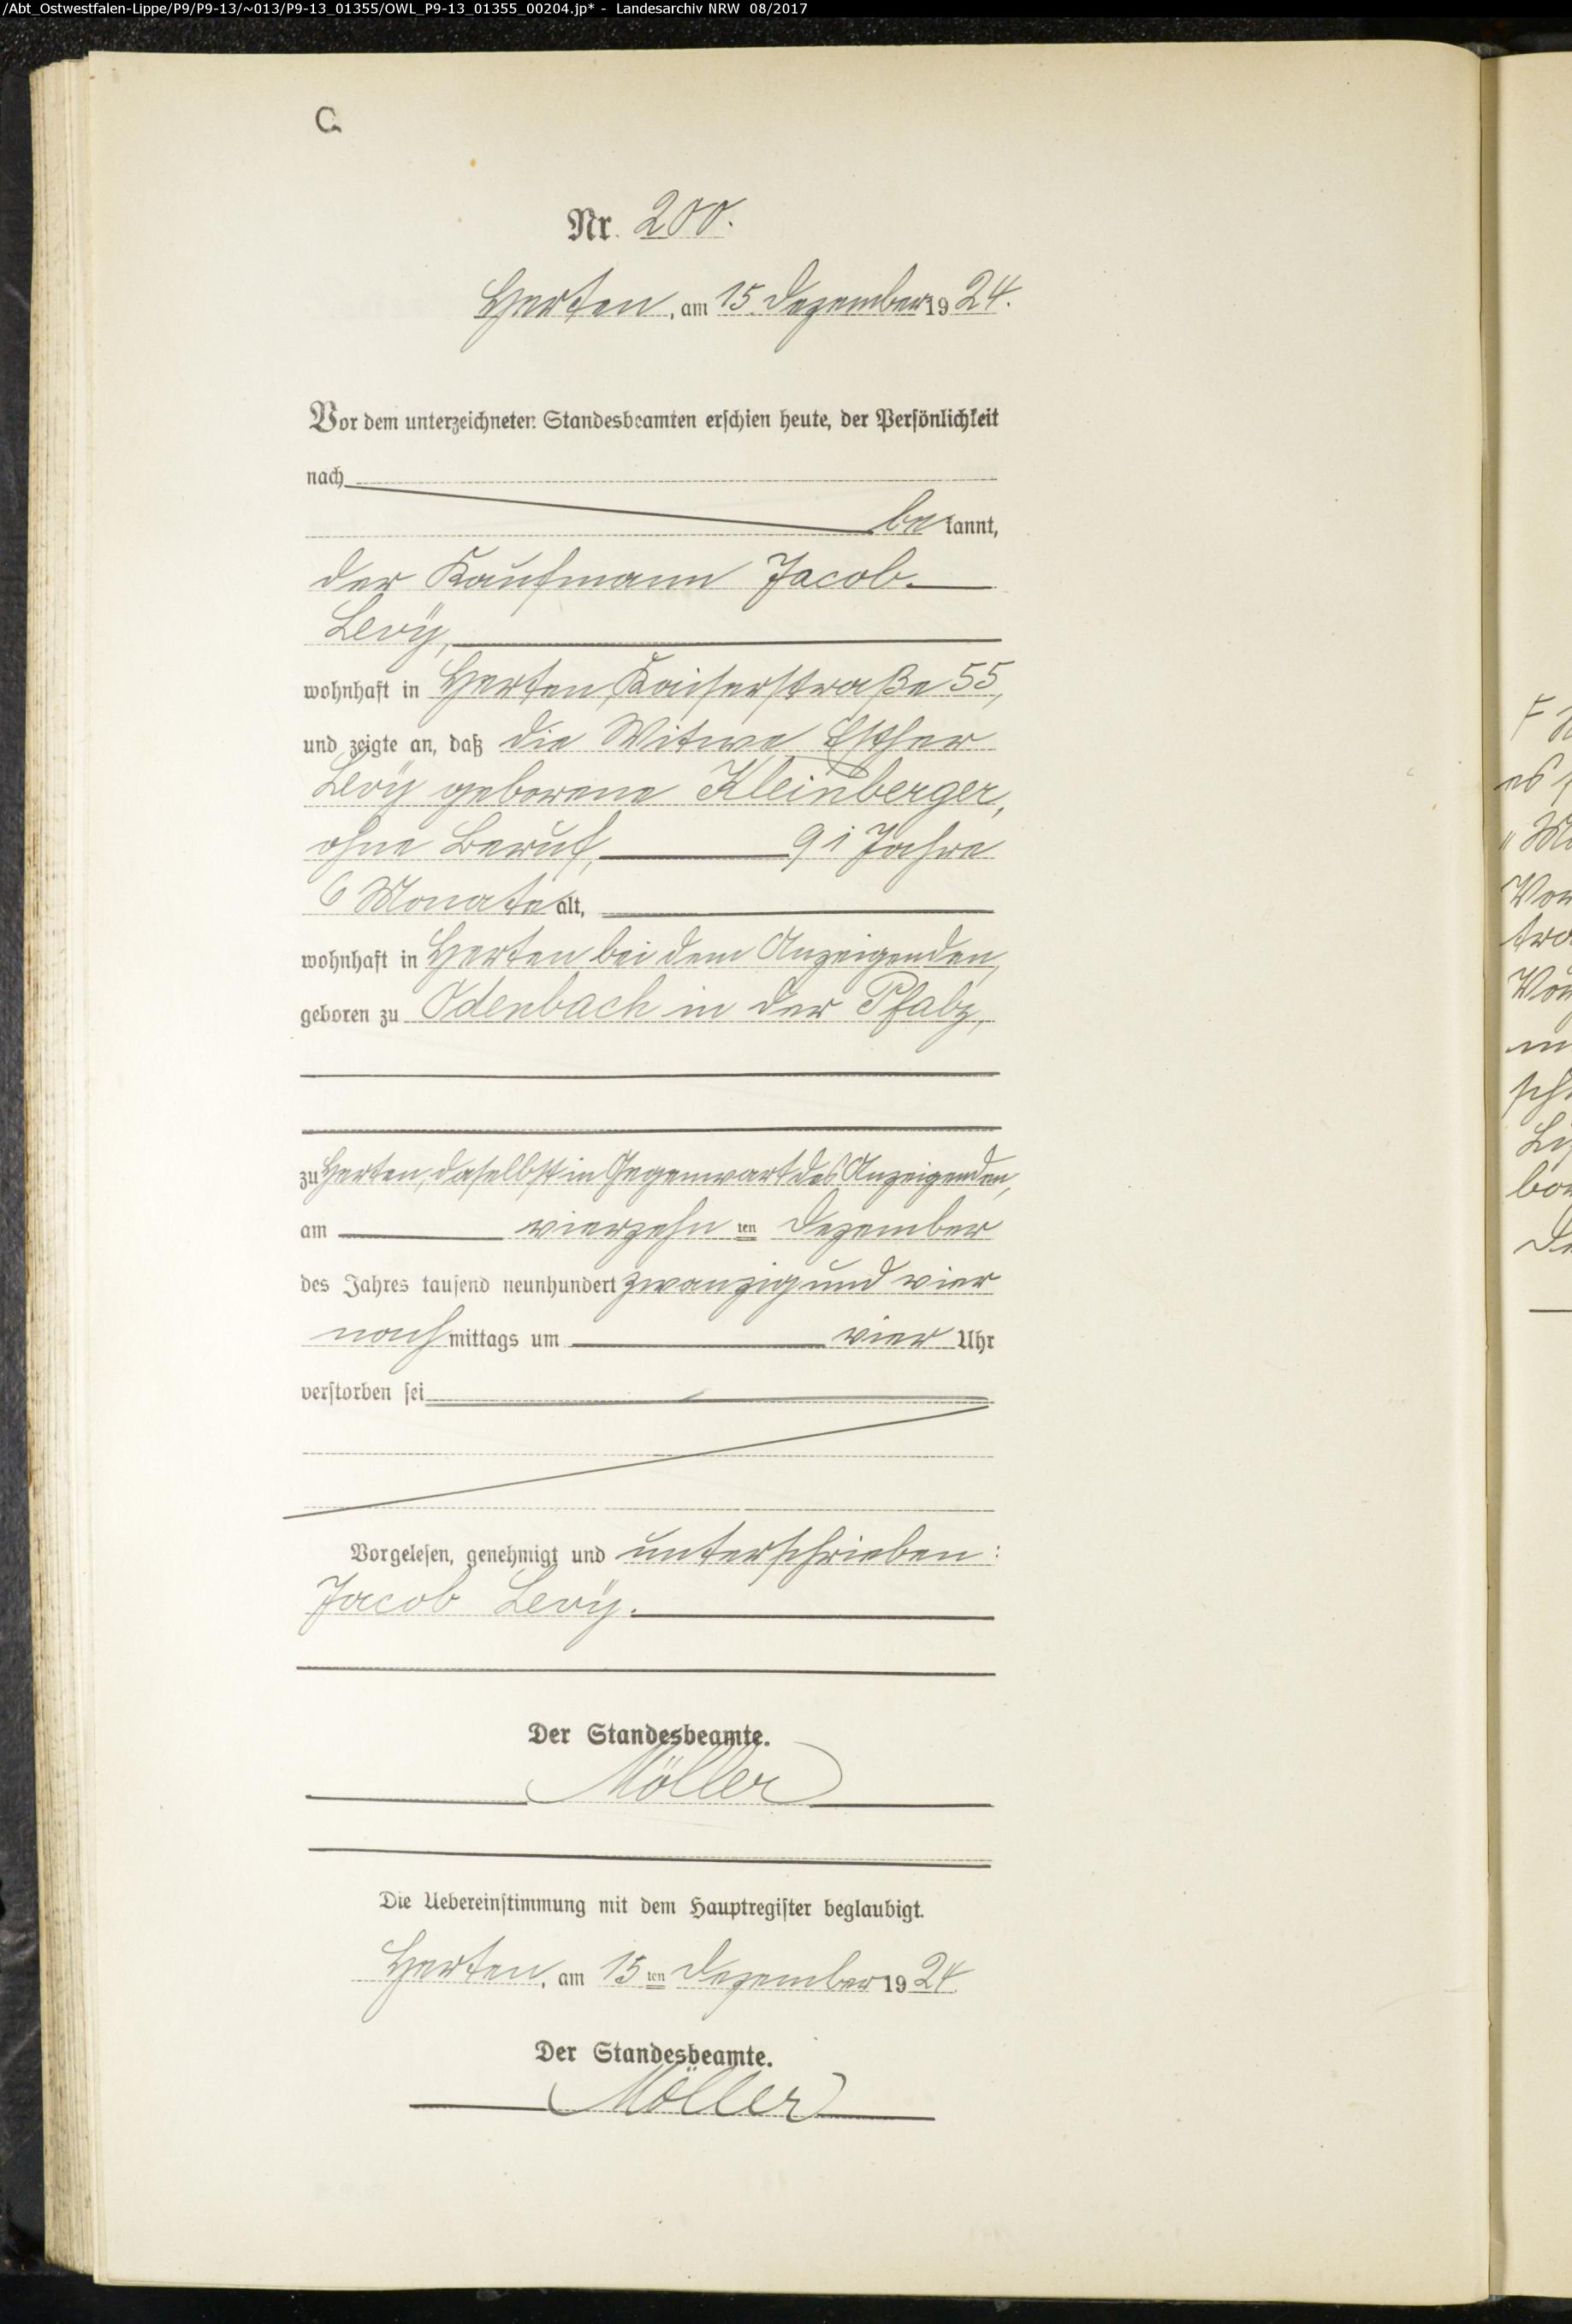 /Abt_Ostwestfalen-Lippe/P9/P9-13/~013/P9-13_01355/OWL_P9-13_01355_00204.jp* - Landesarchiv NRW 08/2017
C.
Nr. 200.
Herten, am 15. Dezember 1924.
Vor dem unterzeichneten Standesbeamten erschien heute, der Persönlichkeit
nach
bekannt,
der Kaufmann Jacob
Levÿ,
wohnhaft in Herten, Kaiserstraße 55,
und zeigte an, daß die Witwe Esther
Levÿ geborene Kleinberger,
ohne Beruf, 91 Jahre
6 Monate alt,
wohnhaft in Herten bei dem Anzeigenden,
geboren zu Odenbach in der Pfalz,
zu Herten, daselbst in Gegenwart des Anzeigenden,
am vierzehn ten Dezember
des Jahres tausend neunhundert zwanzig und vier
nachmittags um vier Uhr
verstorben sei
Vorgelesen, genehmigt und unterschrieben:
Jacob Levÿ.
Der Standesbeamte.
Möller
Die Uebereinstimmung mit dem Hauptregister beglaubigt.
Herten, am 15 ten Dezember 1924
Der Standesbeamte.
Möller